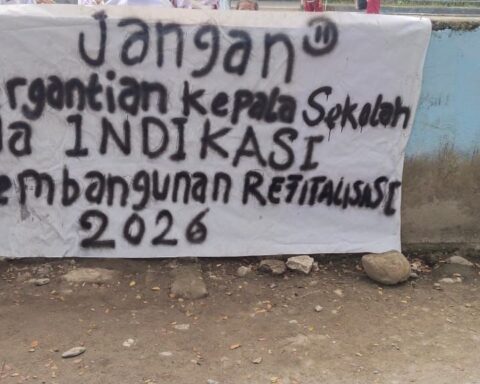 Jangan
rgantian kepala Sekolah
a INDIKASI
embangunan REFITALISASI
2026